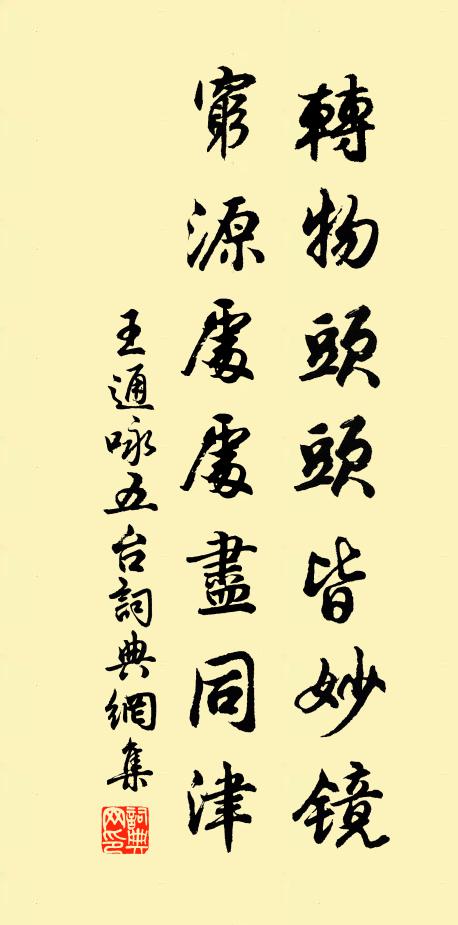 轉物頭頭皆妙鏡
窮源處處盡同津
王通咏五台詞典網集
詞典网印